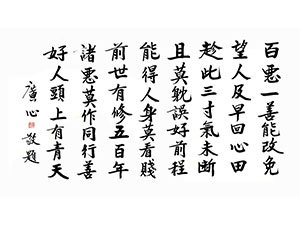 百惡一善能改免
望人及早回心田
趁此三寸氣未斷
且莫耽誤好前程
能得人身莫看賤
前世有修五百年
諸惡莫作同行善
好人頭上有青天
廣心敬題